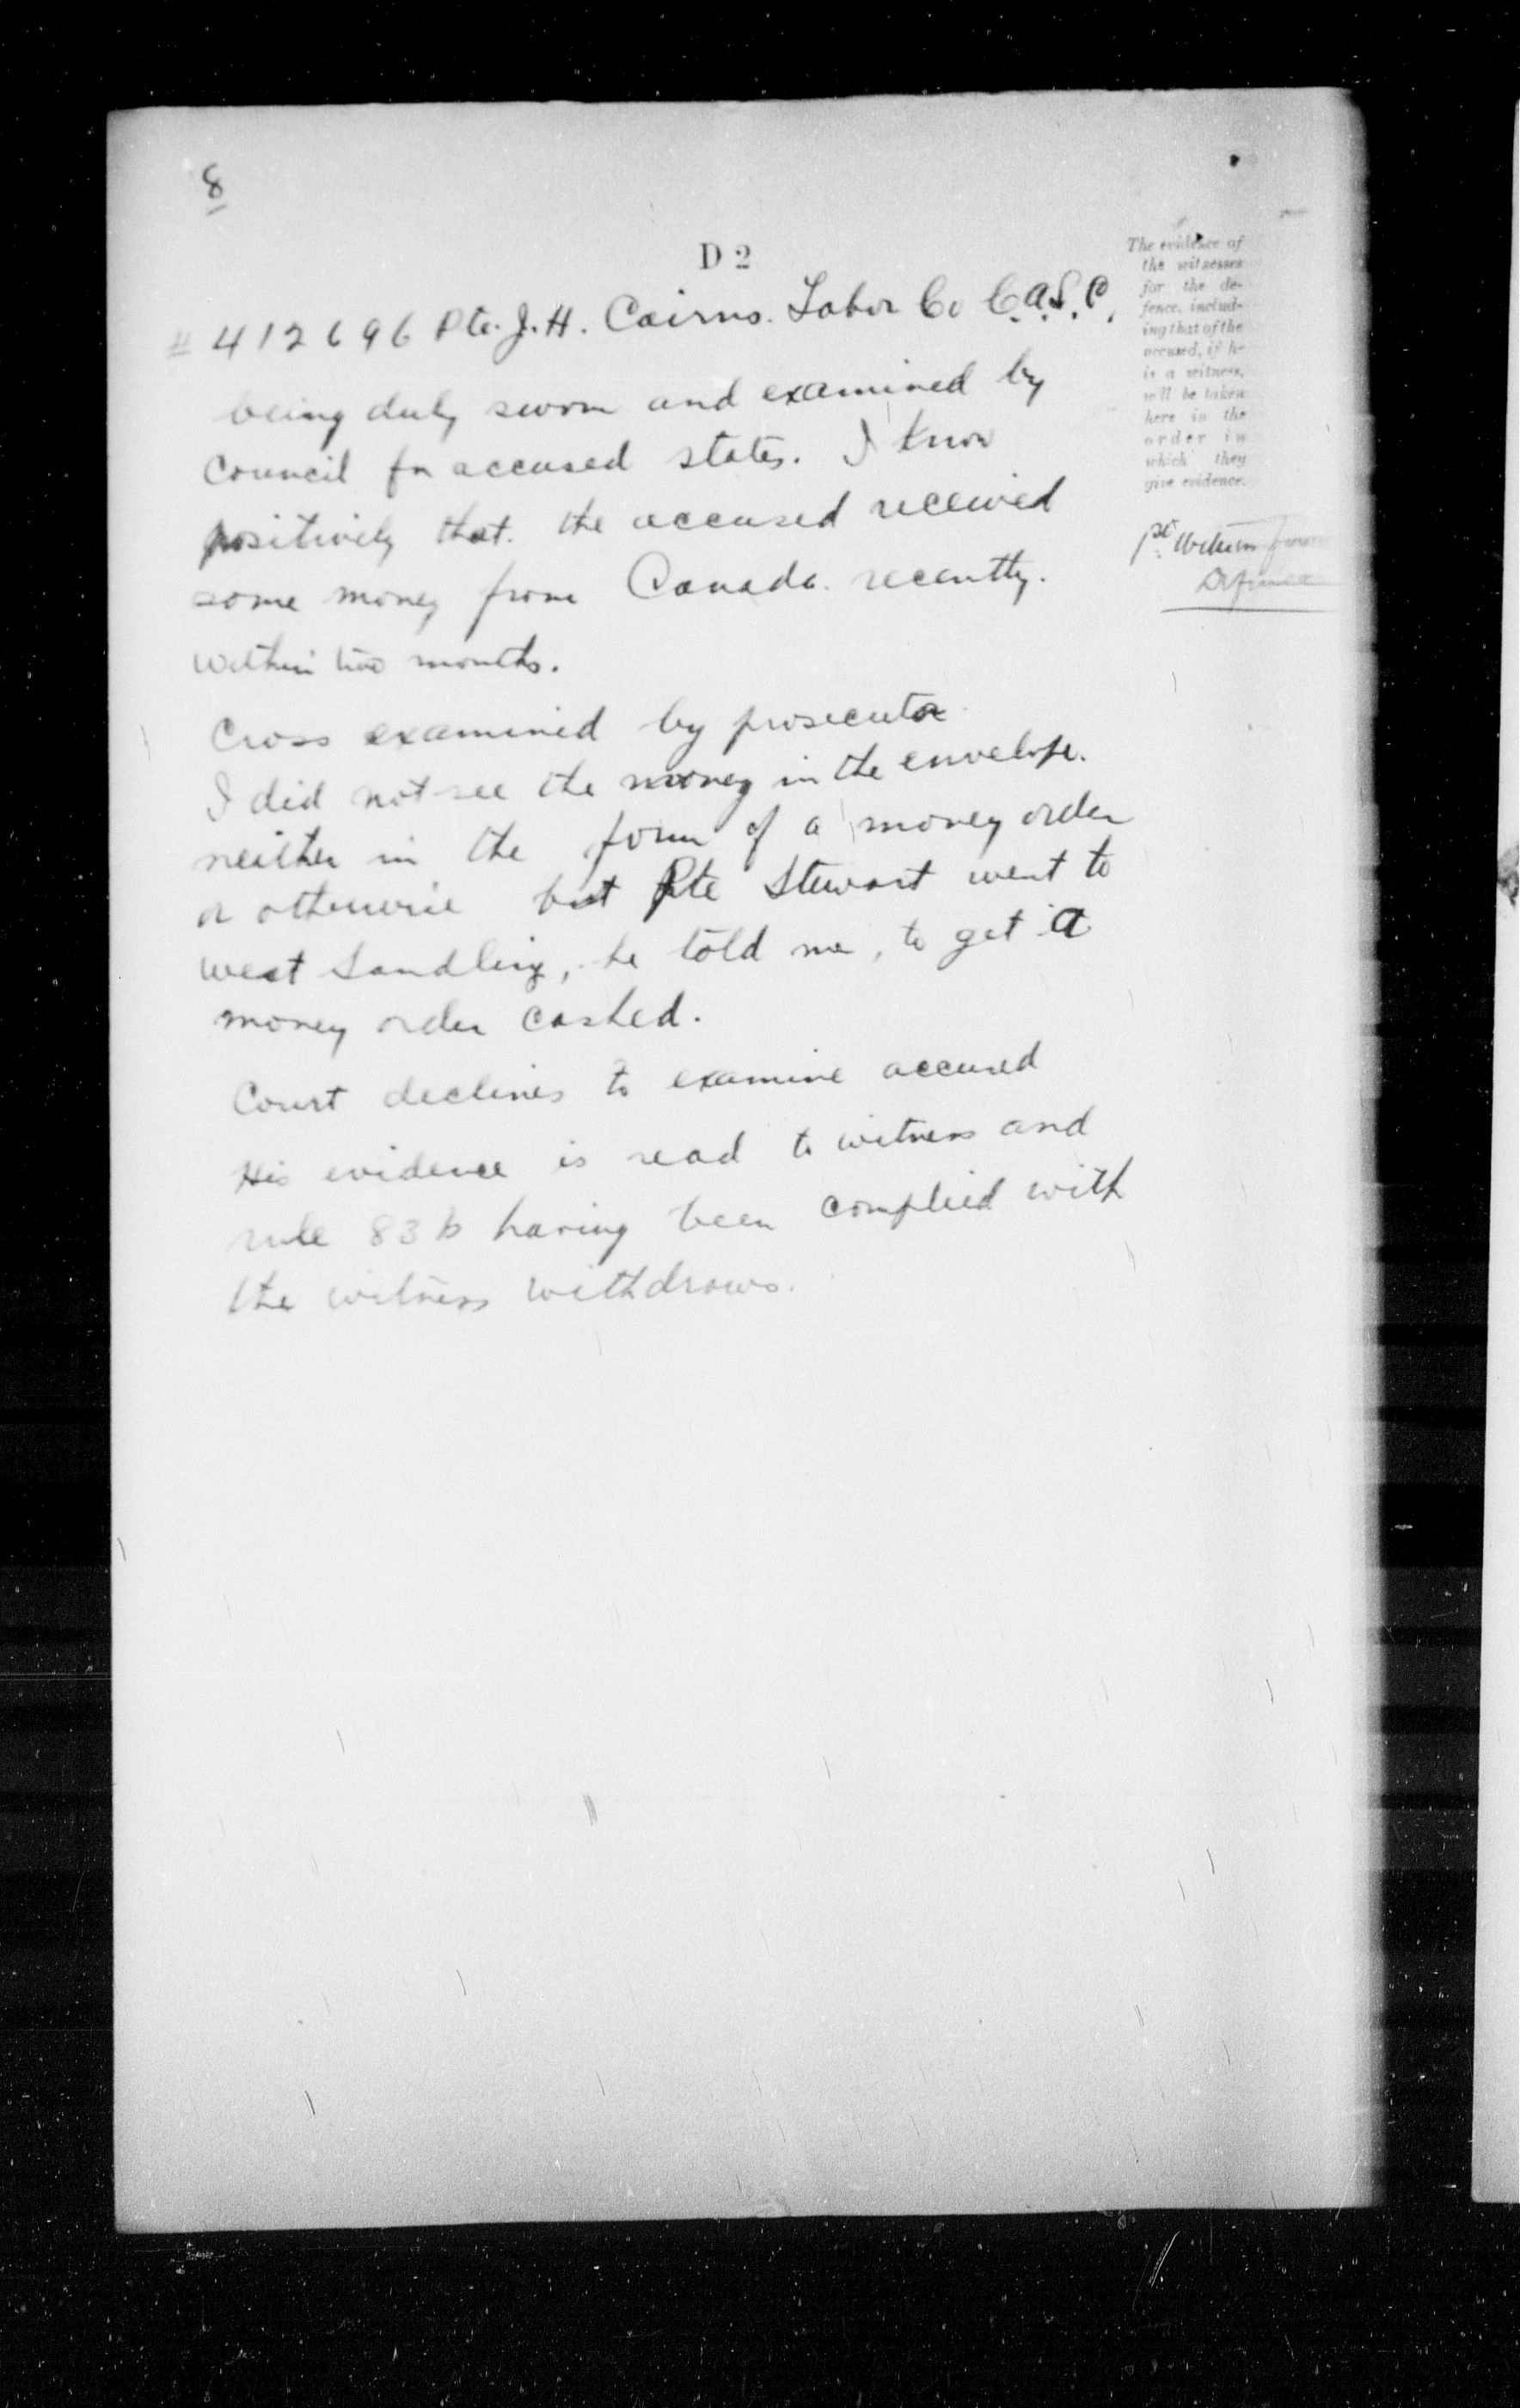 8
D 2
# 412696 Pte. J. H. Cairns. Labor Co C.A.S.C.
being duly sworn and examined by
Council for accused states. I know
positively that. the accused received
some money from Canada. recently.
within two months.
Cross examined by prosecutor
I did not see the money in the envelope.
neither in the form of a money order
or otherwise but Pte Stewart went to
west Sandling, he told me, to get a
money order cashed.
Court declines to examine accused
His evidence is read to witness and
rule 83 b having been complied with
the witness withdraws.
The evidence of
the witnesses
for the de-
fence, includ-
ing that of the
accused, if he
is a witness,
will be taken
here in the
order in
which they
give evidence.
1st Witness for
Defence